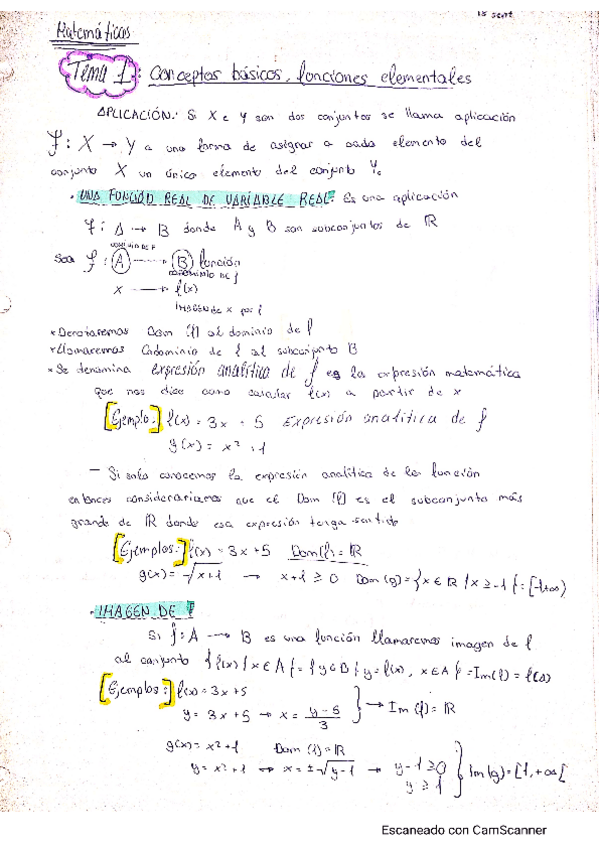 15 sept
Matemáticas
Tema 1: Conceptos básicos, funciones elementales
APLICACIÓN: Si X e Y son dos conjuntos se llama aplicación
f: X → Y a una forma de asignar a cada elemento del
conjunto X un único elemento del conjunto Y.
· UNA FUNCIÓN REAL DE VARIABLE REAL: Es una aplicación
f: A → B donde A y B son subconjuntos de ℝ
DOMINIO DE F
Sea f: A → B función
CODOMINIO DE f
x → f(x)
IMAGEN DE x por f
* Denotaremos Dom (f) al dominio de f
* Llamaremos Codominio de f al subconjunto B
* Se denomina expresión analítica de f es la expresión matemática
que nos dice como calcular f(x) a partir de x
[Ejemplo:] f(x) = 3x + 5 Expresión analítica de f
g(x) = x² + 1
– Si solo conocemos la expresión analítica de la función
entonces consideraríamos que el Dom (f) es el subconjunto más
grande de ℝ donde esa expresión tenga sentido
[Ejemplos:] f(x) = 3x + 5 Dom(f) = ℝ
g(x) = √x+1 → x+1 ≥ 0 Dom (g) = {x ∈ ℝ / x ≥ -1} = [-1, +∞)
· IMAGEN DE f
Si f: A → B es una función llamaremos imagen de f
al conjunto {f(x) / x ∈ A} = {y ∈ B / y = f(x), x ∈ A} = Im(f) = f(A)
[Ejemplos:] f(x) = 3x + 5
y = 3x + 5 → x = y - 5 / 3 } → Im (f) = ℝ
g(x) = x² + 1 Dom (f) = ℝ
y = x² + 1 → x = ± √y - 1 → y - 1 ≥ 0 } Im(g) = [1, +∞[
y ≥ 1
Escaneado con CamScanner